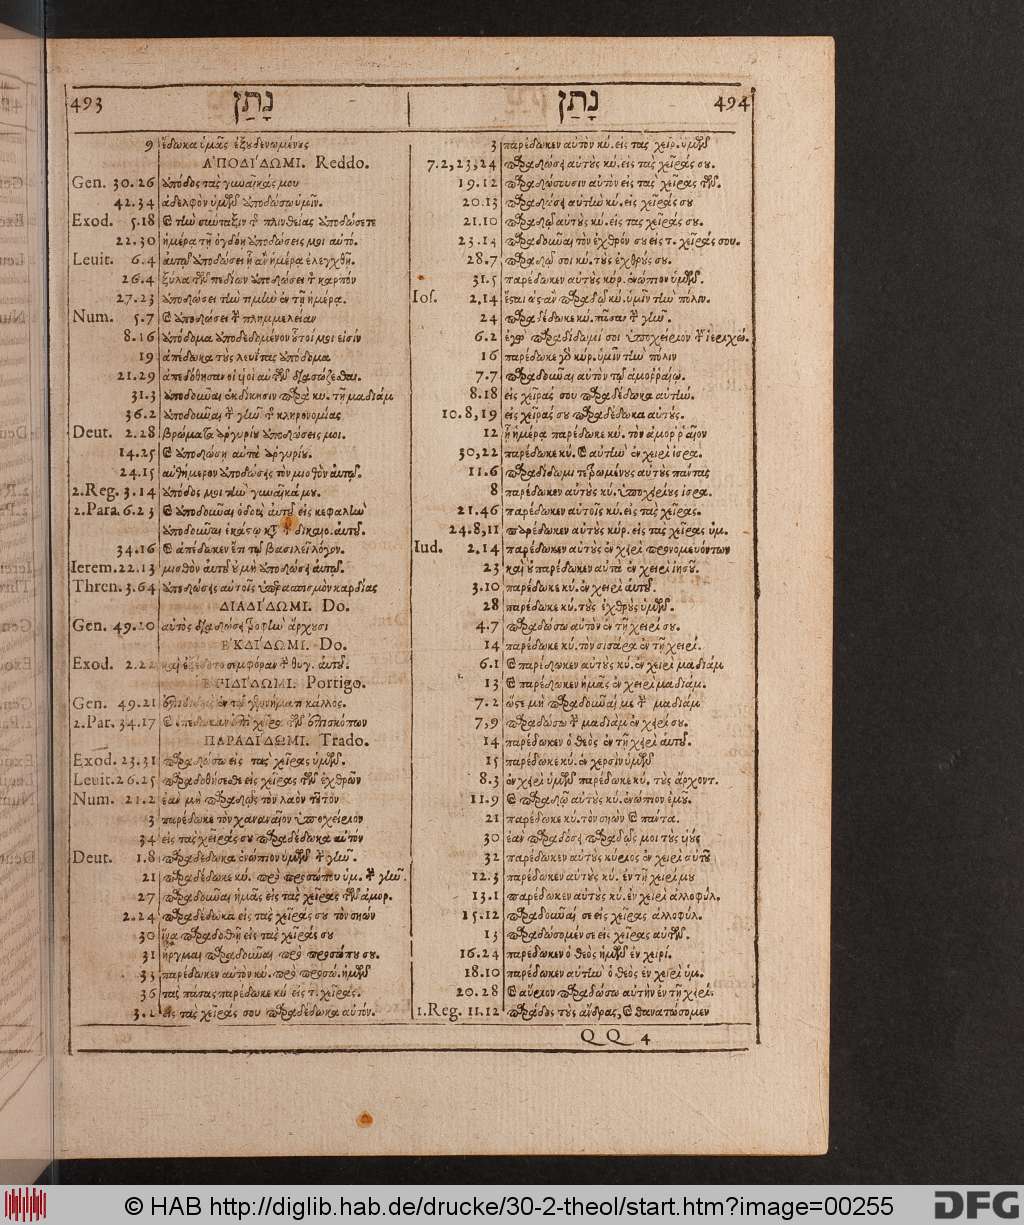 493 נָתַן
9 ἔδωκα ὑμᾶς ἐξουδενωμένους
ἈΠΟΔΊΔΩΜΙ. Reddo.
Gen. 30.26 ἀπόδος τὰς γυναῖκάς μου
42.34 ἀδελφὸν ὑμῶν ἀποδώσω ὑμῖν.
Exod. 5.18 καὶ τὴν σύνταξιν τῆς πλινθείας ἀποδώσετε
22.30 ἡμέρᾳ τῇ ὀγδόῃ ἀποδώσεις μοι αὐτό.
Leuit. 6.4 αὐτῷ ἀποδώσει ᾗ ἂν ἡμέρᾳ ἐλεγχθῇ.
26.4 ξύλα τῶν πεδίων ἀποδώσει τὸν καρπὸν
27.23 ἀποδώσει τὴν τιμὴν ἐν τῇ ἡμέρᾳ.
Num. 5.7 καὶ ἀποδώσει τὴν πλημμελείαν
8.16 ἀπόδομα ἀποδεδομένον οὗτοί μοι εἰσίν
19 ἀπέδωκα τοὺς λευίτας ἀπόδομα
21.29 ἀπεδόθησαν οἱ υἱοὶ αὐτῶν διασώζεσθαι.
31.3 ἀποδοῦναι ἐκδίκησιν παρὰ κυ. τῇ μαδιάμ
36.2 ἀποδοῦναι τὴν γῆν τῆς κληρονομίας
Deut. 2.28 βρώματα ἀργυρίου ἀποδώσεις μοι.
14.25 καὶ ἀποδώσῃ αὐτὰ ἀργυρίου.
24.15 αὐθήμερον ἀποδώσεις τὸν μισθὸν αὐτοῦ.
2.Reg. 3.14 ἀπόδος μοι τὴν γυναῖκά μου.
2.Para. 6.23 καὶ ἀποδοῦναι ὁδοὺς αὐτοῦ εἰς κεφαλὴν
ἀποδοῦναι ἑκάστῳ κατὰ τὴν δικαιο. αὐτοῦ.
34.16 καὶ ἀπέδωκεν ἔτι τῷ βασιλεῖ λόγον.
Ierem. 22.13 μισθὸν αὐτοῦ οὐ μὴ ἀποδώσει αὐτῷ.
Thren. 3.64 ἀποδώσεις αὐτοῖς ὑπερασπισμὸν καρδίας
ΔΙΑΔΊΔΩΜΙ. Do.
Gen. 49.20 αὐτὸς διαδώσει τροφὴν ἄρχουσι
ἘΚΔΊΔΩΜΙ. Do.
Exod. 2.22
ἘΠΙΔΊΔΩΜΙ. Portigo.
Gen. 49.21 ἐπιδιδοὺς ἐν τῷ γεννήματι κάλλος.
2.Par. 34.17 καὶ ἐπέδωκαν ἐπὶ χεῖρα τῶν ἐπισκόπων
ΠΑΡΑΔΊΔΩΜΙ. Trado.
Exod. 23.31 παραδώσω εἰς τὰς χεῖρας ὑμῶν.
Leuit. 26.25 παραδοθήσεσθε εἰς χεῖρας τῶν ἐχθρῶν
Num. 21.2 ἐάν μοι παραδῷς τὸν λαὸν τοῦτον
3 παρέδωκε τὸν χαναναῖον ὑποχείριον
34 εἰς τὰς χεῖράς σου παραδέδωκα αὐτόν
Deut. 1.8 παραδέδωκα ἐνώπιον ὑμῶν τὴν γῆν.
21 παραδέδωκε κύ. πρὸ προσώπου ὑμ. τὴν γῆν.
27 παραδοῦναι ἡμᾶς εἰς τὰς χεῖρας τῶν ἀμορ.
2.24 παραδέδωκα εἰς τὰς χεῖράς σου τὸν σηών
30 ἵνα παραδοθῇ εἰς τὰς χεῖράς σου
31 ἦργμαι παραδοῦναι πρὸ προσώπου σου.
33 παρέδωκεν αὐτὸν κύ. πρὸ προσώ. ἡμῶν
36 τὰς πάσας παρέδωκε κύ εἰς τ. χεῖρας.
3.2 εἰς τὰς χεῖράς σου παραδέδωκα αὐτόν.
נָתַן 494
3 παρέδωκεν αὐτὸν κύ. εἰς τὰς χεῖρ. ὑμῶν
7.2,23,24 παραδώσει αὐτοὺς κύ. εἰς τὰς χεῖράς σου.
19.12 παραδώσουσιν αὐτὸν εἰς τὰς χεῖρας τῶν.
20.13 παραδώσει αὐτὴν κύ. εἰς χεῖράς σου
21.10 παραδῷ αὐτοὺς κύ. εἰς τὰς χεῖράς σου.
23.14 παραδοῦναι τὸν ἐχθρόν σου εἰς τ. χεῖράς σου.
28.7 παραδῷ σοι κύ. τοὺς ἐχθρούς σου.
31.5 παρέδωκεν αὐτοὺς κύρ. ἐνώπιον ὑμῶν.
Ios. 2.14 ἔσται ὡς ἂν παραδῷ κύ. ὑμῖν τὴν πόλιν.
24 παραδέδωκε κύ. πᾶσαν τὴν γῆν.
6.2 ἐγὼ παραδίδωμί σοι ὑποχείριον τὴν ἱεριχώ.
16 παρέδωκε γὰρ κύρ. ὑμῖν τὴν πόλιν
7.7 παραδοῦναι αὐτὸν τῷ ἀμοῤῥαίῳ.
8.18 εἰς χεῖράς σου παραδέδωκα αὐτήν.
10.8,19 εἰς χεῖράς σου παραδέδωκα αὐτούς.
12 ᾗ ἡμέρᾳ παρέδωκε κύ. τὸν ἀμοῤῥαῖον
30,22 παρέδωκε κύ. καὶ αὐτὴν ἐν χειρὶ ἰσρα.
11.6 παραδίδωμι τετρωμένους αὐτοὺς πάντας
8 παρέδωκεν αὐτοὺς κύ. ὑποχειρίους ἰσρα.
21.46 παρέδωκεν αὐτοῖς κύ. εἰς τὰς χεῖρας.
24.8,11 παρέδωκεν αὐτοὺς κύρ. εἰς τὰς χεῖρας ὑμ.
Iud. 2.14 παρέδωκεν αὐτοὺς ἐν χειρὶ προνομευόντων
23 καὶ οὐ παρέδωκεν αὐτὰ ἐν χειρὶ ἰησοῦ.
3.10 παρέδωκε κύ. ἐν χειρὶ αὐτοῦ.
28 παρέδωκε κύ. τοὺς ἐχθροὺς ὑμῶν.
4.7 παραδώσω αὐτὸν ἐν τῇ χειρί σου.
14 παρέδωκε κύ. τὸν σισάρα ἐν τῇ χειρί.
6.1 καὶ παρέδωκεν αὐτοὺς κύ. ἐν χειρὶ μαδιάμ
13 καὶ παρέδωκεν ἡμᾶς ἐν χειρὶ μαδιάμ.
7.2 ὥστε μὴ παραδοῦναί με τὴν μαδιάμ
7,9 παραδώσω τὴν μαδιὰμ ἐν χειρί σου.
14 παρέδωκεν ὁ θεὸς ἐν τῇ χειρὶ αὐτοῦ.
15 παρέδωκε κύ. ἐν χερσὶν ὑμῶν
8.3 ἐν χειρὶ ὑμῶν παρέδωκε κύ. τοὺς ἄρχοντ.
11.9 καὶ παραδῷ αὐτοὺς κύ. ἐνώπιον ἐμοῦ.
21 παρέδωκε κύ. τὸν σηὼν καὶ πάντα.
30 ἐὰν παραδόσει παραδῷς μοι τοὺς υἱοὺς
32 παρέδωκεν αὐτοὺς κύριος ἐν χειρὶ αὐτοῦ
12.3 παρέδωκεν αὐτοὺς κύ. ἐν τῇ χειρί μου
13.1 παρέδωκεν αὐτοὺς κύ. ἐν χειρὶ ἀλλοφύλ.
15.12 παραδοῦναί σε εἰς χεῖρας ἀλλοφύλ.
13 παραδώσομέν σε εἰς χεῖρας αὐτῶν.
16.24 παρέδωκεν ὁ θεὸς ἡμῶν ἐν χειρί.
18.10 παρέδωκεν αὐτὴν ὁ θεὸς ἐν χειρὶ ὑμ.
20.28 καὶ αὔριον παραδώσω αὐτὴν ἐν τῇ χειρί.
1.Reg. 11.12 παράδος τοὺς ἄνδρας, καὶ θανατώσομεν
QQ 4
© HAB http://diglib.hab.de/drucke/30-2-theol/start.htm?image=00255
DFG